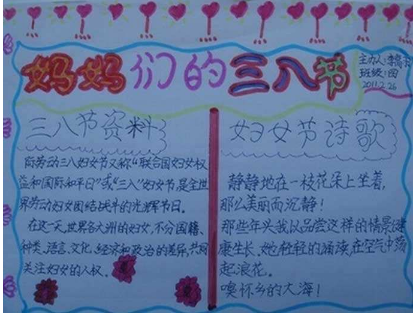 妈妈们的三八节
主办人:李
班级:四
2011.2.26
三八节资料
际劳动三八妇女节又称"联合国妇女权
益和国际和平日"或"三八"妇女节,是全世
界劳动妇女团结战斗的光辉节日。
在这一天,世界各大洲的妇女,不分国籍、
种类、语言、文化、经济和政治的差异,共同
关注妇女的人权。
妇女节诗歌
静静地在一枝花朵上坐着,
那么美丽而沉静!
那些年头我以品尝这样的情景健
康生长,她轻轻的诵读在空气中荡
起浪花。
噢怀乡的大海!